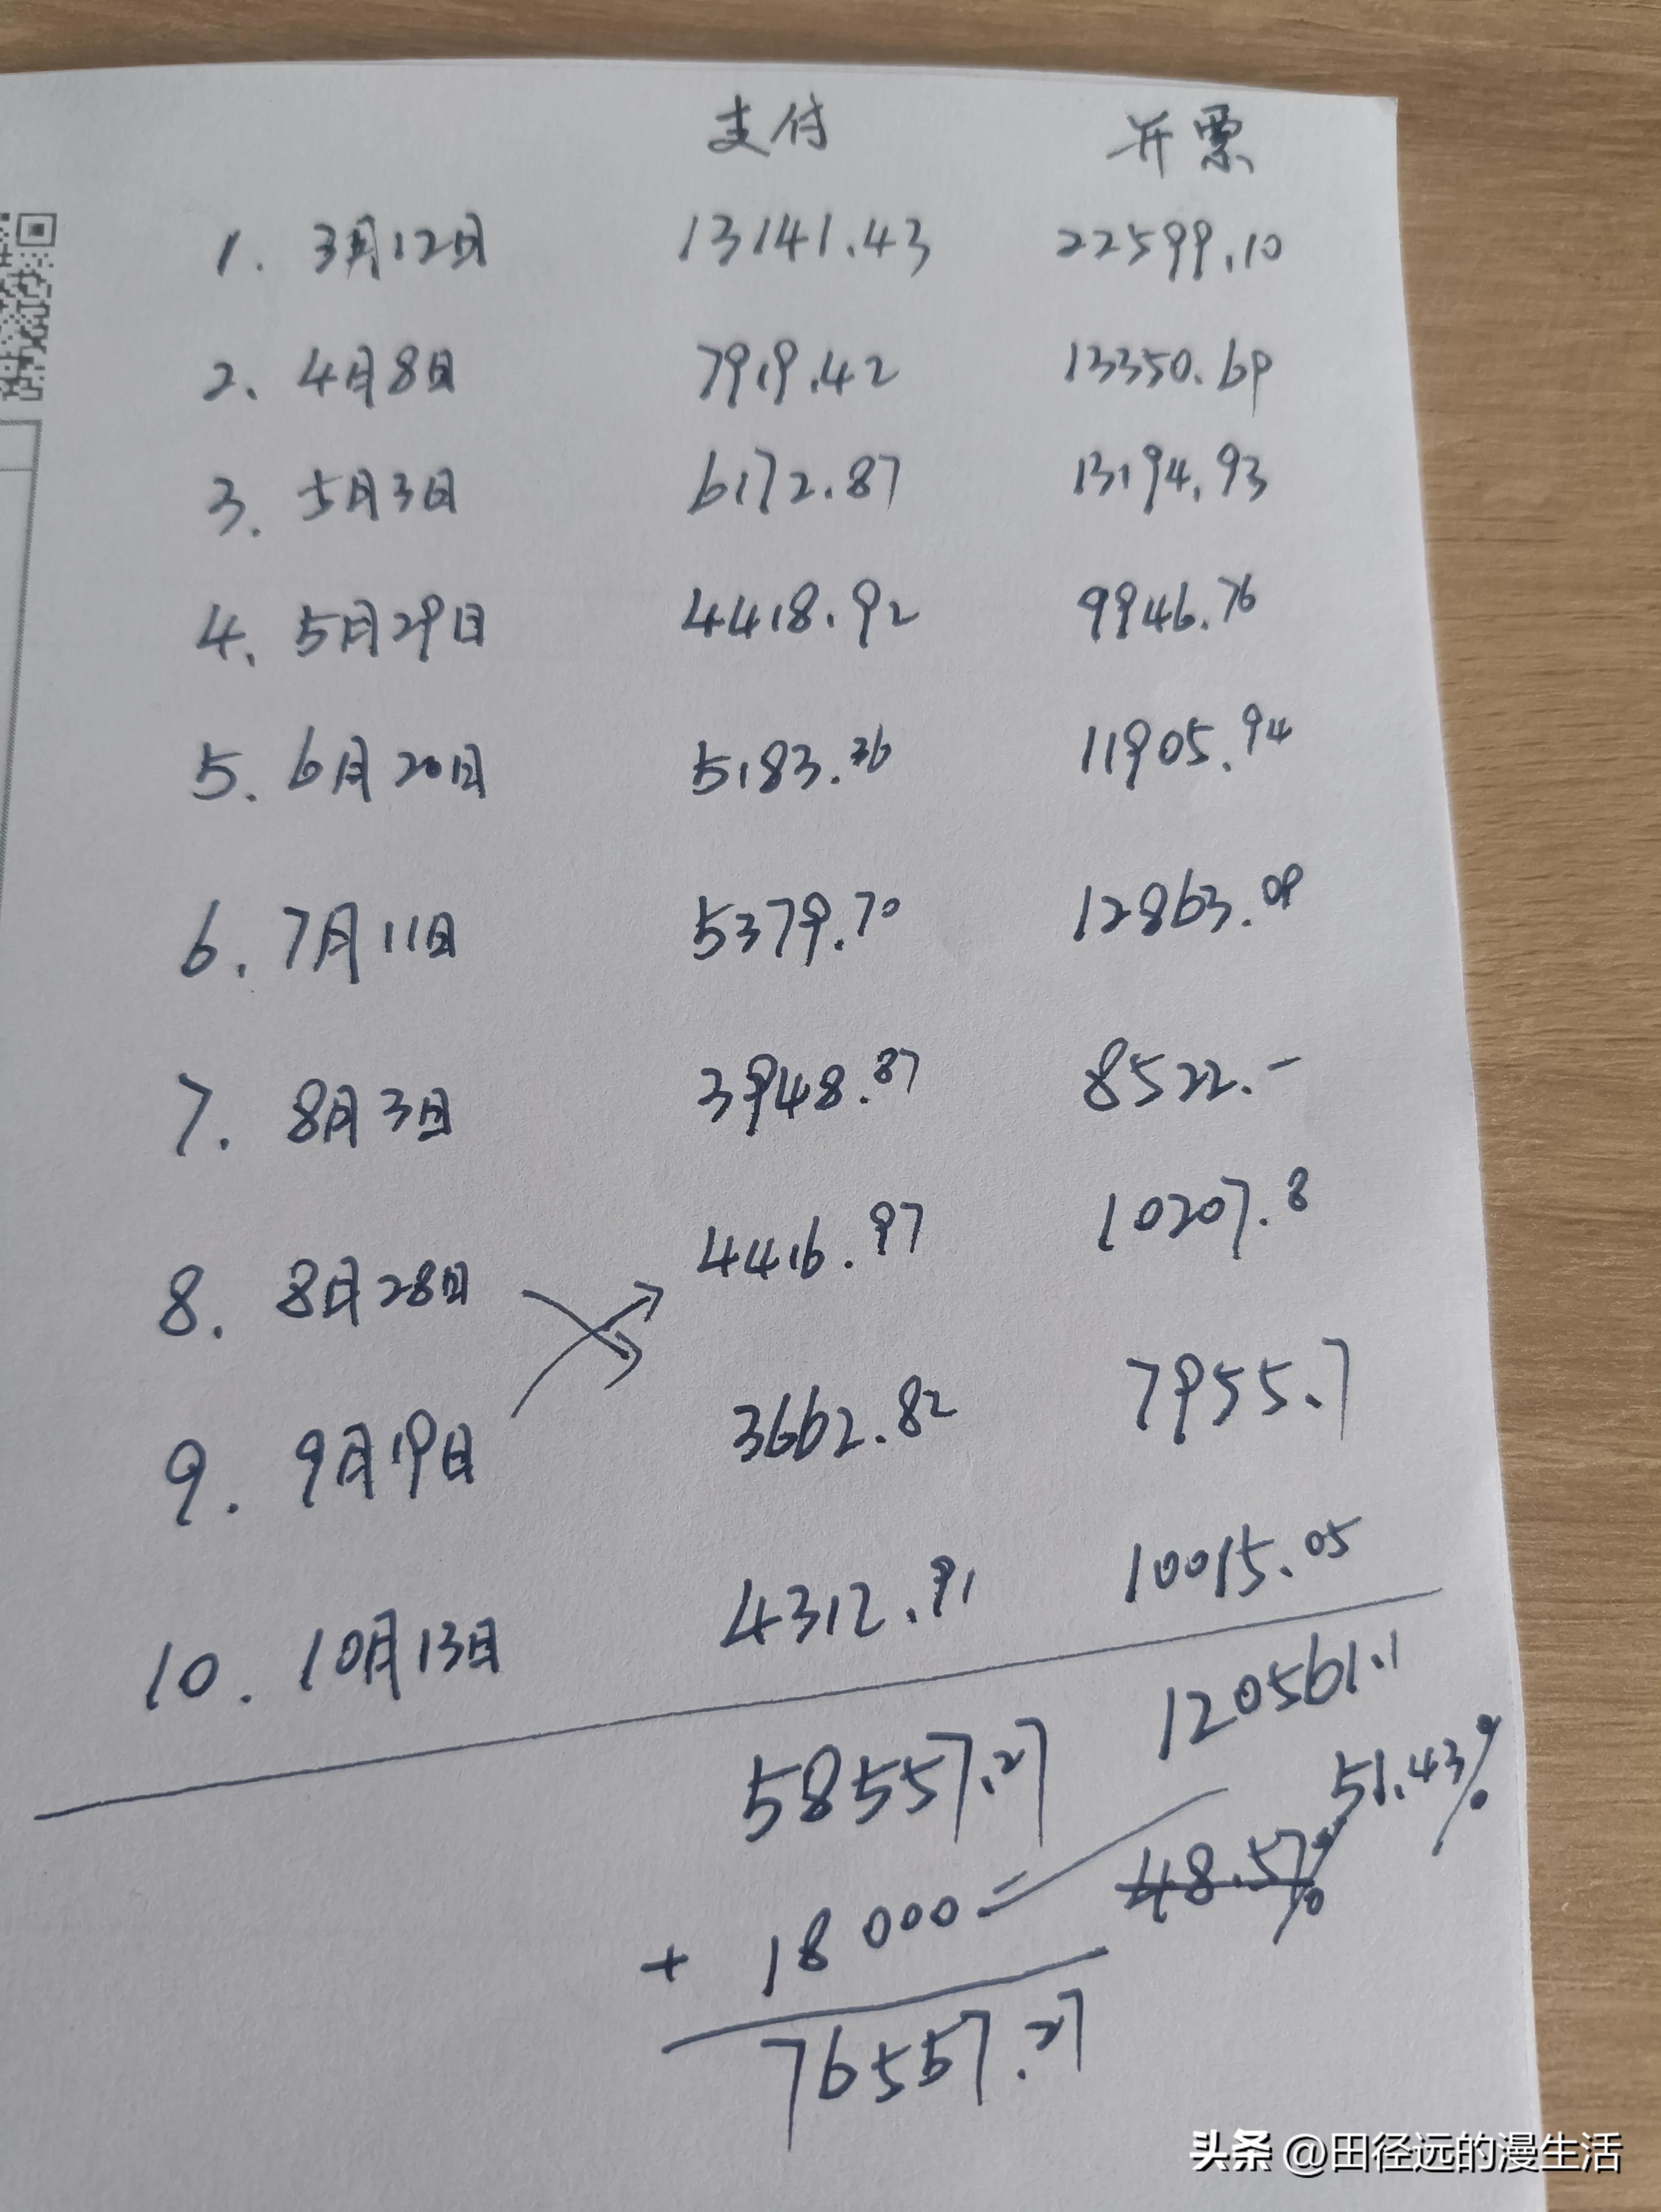 支付 开票
1. 3月12日 13141.43 22599.10
2. 4月8日 7919.42 13350.69
3. 5月3日 6172.87 13194.93
4. 5月29日 4418.92 9946.76
5. 6月20日 5183.36 11905.94
6. 7月11日 5379.70 12863.09
7. 8月3日 3948.87 8522.-
8. 8月28日 4416.97 10207.8
9. 9月19日 3662.82 7955.7
10. 10月13日 4312.91 10015.05
58557.27 120561.1
51.43%
+ 18000= 48.57%
76557.27
头条 @田径远的漫生活